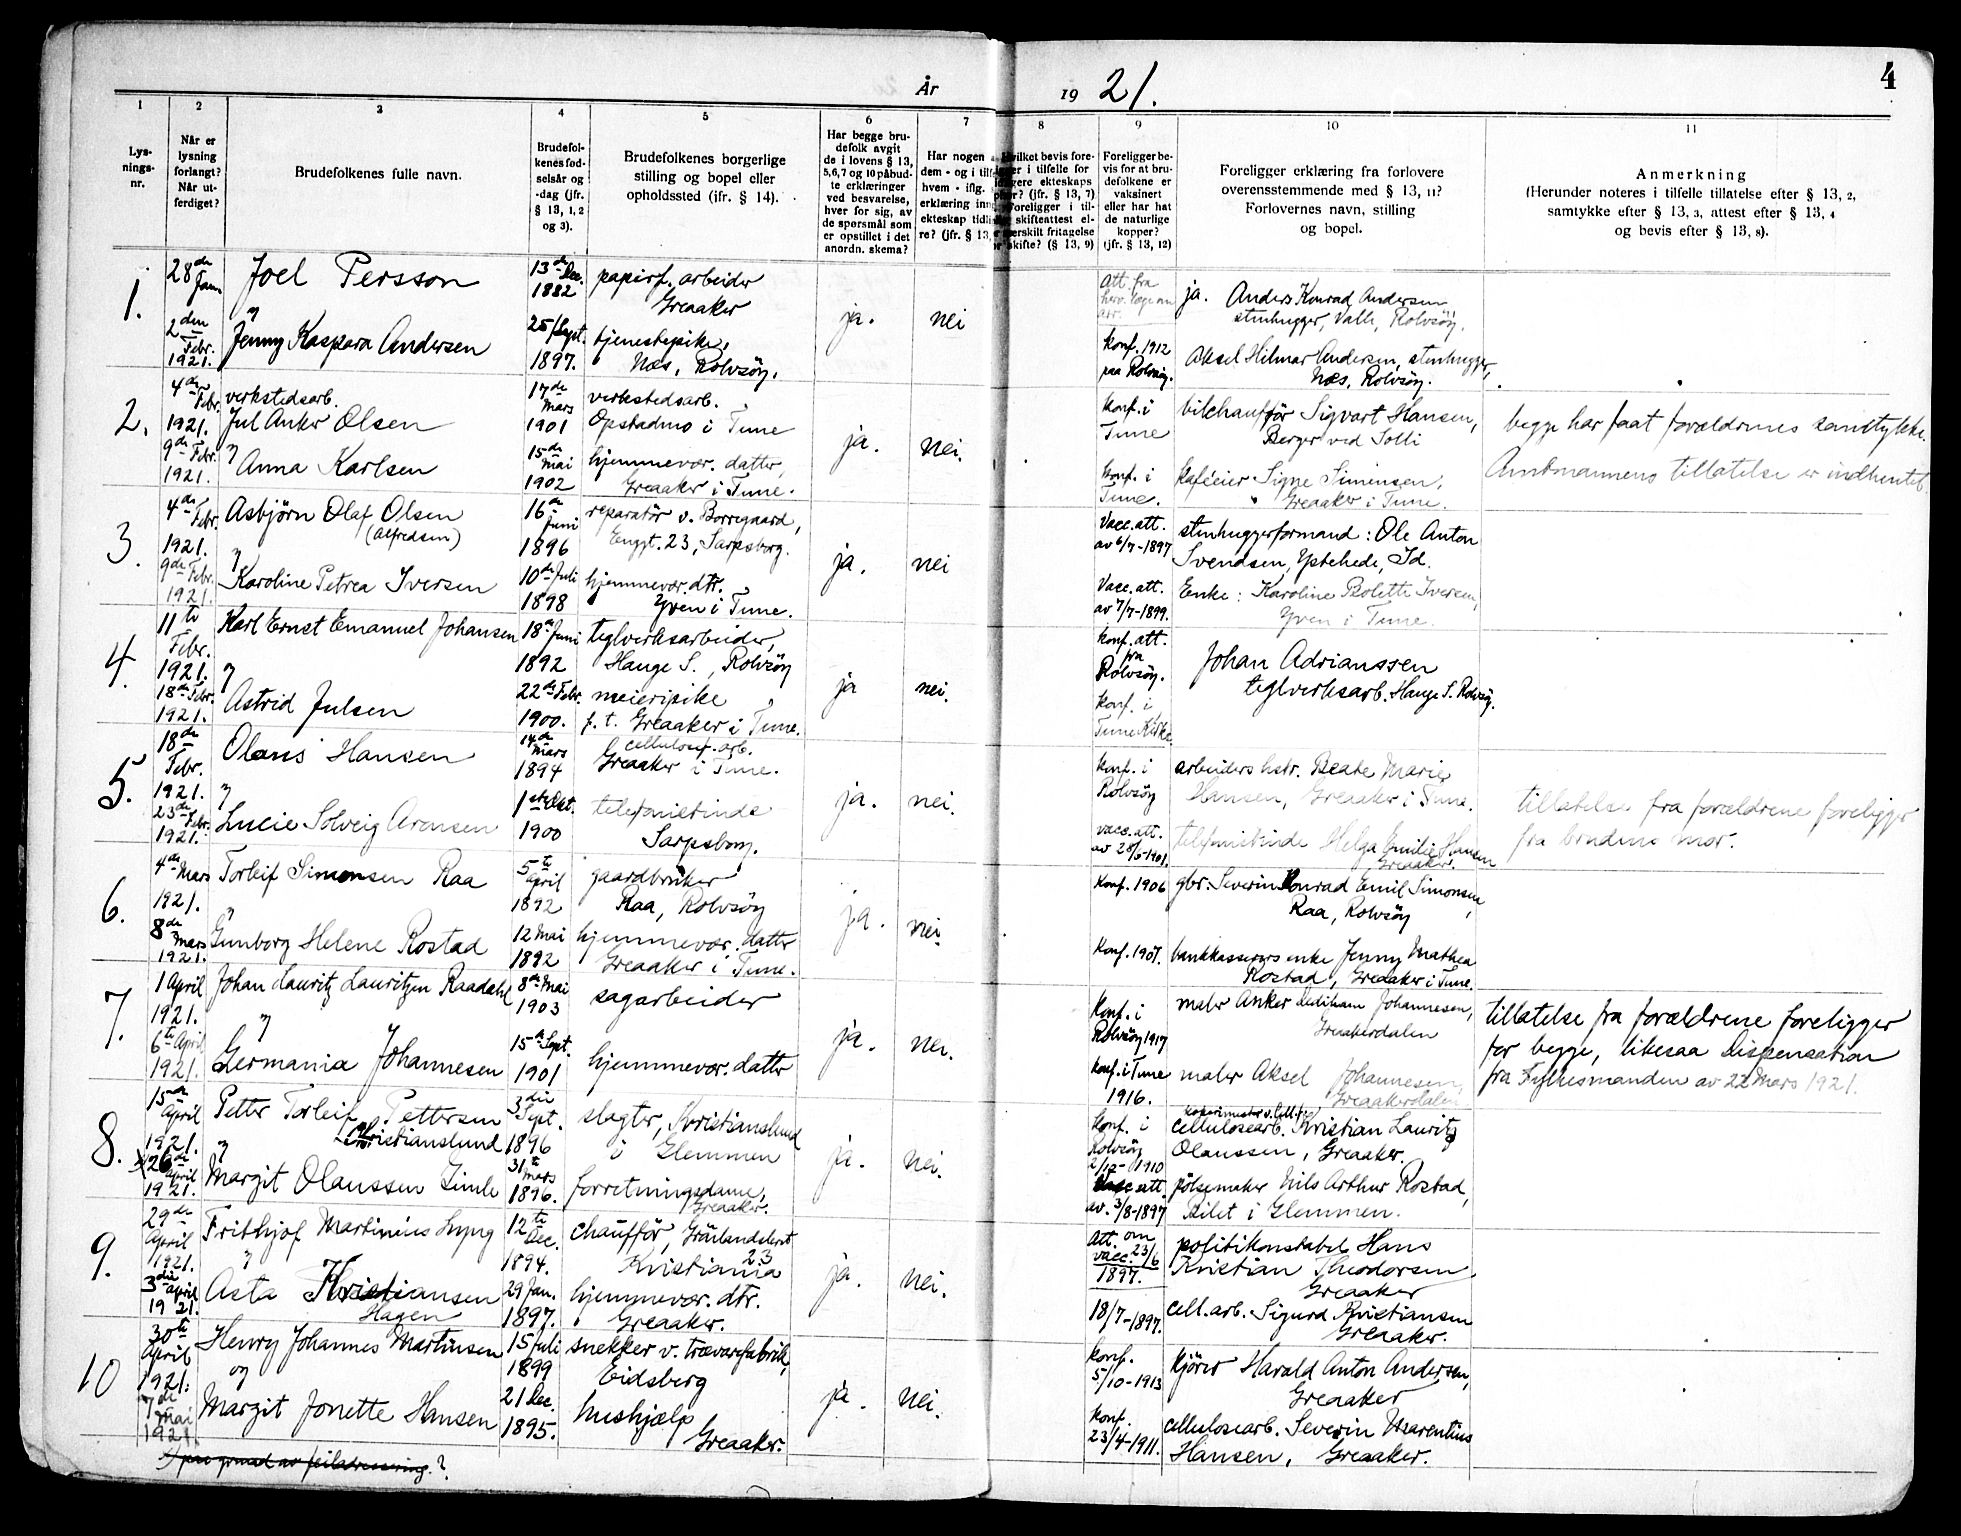 År 1921.
4
1
2
3
4
5
6
7
8
9
10
11
Lys-
nings-
nr.
Når er
lysning
forlangt?
Når ut-
ferdiget?
Brudefolkenes fulle navn.
Brudefol-
kenes fød-
selsår og
-dag (jfr.
§ 13, 1, 2
og 3).
Brudefolkenes borgerlige
stilling og bopel eller
opholdssted (jfr. § 14).
Har begge bru-
defolk avgit
de i lovens § 13,
5,6,7 og 10 påbud-
te erklæringer
ved besvarelse,
hver for sig, av
de spørsmål som
er opstillet i det
anordn. skema?
Har nogen
dem - og i tilf
hvem - iflg.
erklæring inn
ekteskap tidli
re? (jfr. § 13,
vilket bevis fore-
i tilfelle for
gere ekteskaps
? (jfr. § 13, 7)
Foreligger i til-
skifteattest el-
erskilt fritagelse
skifte? (§ 13, 9)
Foreligger be-
vis for at bru-
defolkene er
vaksinert
eller har hat
de naturlige
kopper?
(jfr. § 13, 12)
Foreligger erklæring fra forlovere
overensstemmende med § 13, 11?
Forlovernes navn, stilling
og bopel.
Anmerkning
(Herunder noteres i tilfelle tillatelse efter § 13, 2,
samtykke efter § 13, 3, attest efter § 13, 4
og bevis efter § 13, 8).
1.
28de Jan
2den Febr.
1921.
Joel Persson
"
Jenny Kaspara Andersen
13de Dec.
1882
25/Sept.
1897.
papirf. arbeider
Greaaker
tjenestepike,
Næs, Rolvsöy.
ja.
nei
att. fra
konf. 1912
paa Rolvsöy.
ja. Anders Konrad Andersen
stenhugger, Valle, Rolvsöy.
Aksel Hilmar Andersen, stenhugger,
Næs, Rolvsöy.
2.
4de Febr.
1921.
9de Febr.
1921.
verkstedsarb.
Jul Anker Olsen
"
Anna Karlsen
17de Mars
1901
15de Mai
1902
verkstedsarb.
Opstadmo i Tune
hjemmevær. datter,
Greaaker i Tune.
ja.
nei.
konf. i
Tune
konf. i
Tune.
bilchauffør Sigvart Hansen,
Berger ved Solli
kaféeier Signe Simensen,
Greaaker i Tune.
begge har faat forældrenes samtykke.
Amtmannens tillatelse er indhentet.
3.
4de Febr.
1921.
9de Febr.
1921.
Asbjörn Olaf Olsen
(Alfredsen)
"
Karoline Petrea Iversen
16de Juni
1896
10de Juli
1898
reparatör v. Borregaard,
Engt. 23, Sarpsborg.
hjemmevær. dtr.
Yven i Tune.
ja.
nei
Vacc. att.
av 6/7-1897
Vacc. att.
av 7/7-1899.
stenhuggerformand: Ole Anton
Svendsen, Ystehede, Id.
Enke: Karoline Bolette Iversen,
Yven i Tune.
4.
11te
Febr.
1921.
18de Febr.
1921.
Karl Ernst Emanuel Johansen
"
Astrid Julsen
18de Juni
1892
22de Febr.
1900.
teglverksarbeider,
Hauge S., Rolvsöy
meieripike
p. t. Greaaker i Tune.
ja
nei.
konf. att.
fra
Rolvsöy.
konf. i
Tune Kirke
Johan Adrianssen
teglverksarb. Hauge S. Rolvsöy.
5.
18de
Febr.
1921.
23de Febr.
1921.
Olaus Hansen
"
Lucie Solveig Aronsen
14de Mars
1894
1ste Okt.
1900
cellulosef. arb.
Greaaker i Tune.
telefonistinde
Sarpsborg.
ja.
nei.
konf. i
Rolvsöy
vacc. att.
arbeiders hstr. Beate Marie
Hansen, Greaaker i Tune.
telefonistinde Helga Emilie Hansen
Greaaker.
tillatelse fra forældrene foreligger
fra brudens mor.
6.
4de Mars
1921.
8de Mars
1921.
Torleif Simonsen Raa
"
Gunborg Helene Rostad
5te April
1892
12 Mai
1892
gaardbruker
Raa, Rolvsöy
hjemmevær. datter
Greaaker i Tune.
ja.
nei.
Konf. 1906
Konf. 1907.
gbr. Severin Konrad Emil Simonsen,
Raa, Rolvsöy
bankkasserers enke Jenny Mathea
Rostad, Greaaker i Tune.
7.
1 April
1921.
6te April
1921.
Johan Lauritz Lauritzen Raadahl
"
Germania Johannesen
8de Mai
1903
15de Sept.
1901
sagarbeider
hjemmevær. datter
ja.
nei.
konf. i
Rolvsöy 1917
konf. i Tune
1916.
maler Anker Johannesen,
Greaakerdalen
maler Aksel Johannesen,
Greaakerdalen
tillatelse fra forældrene foreligger
for begge, likesaa dispensation
fra Fylkesmanden av 22 Mars 1921.
8.
15de
April
1921.
x 26de
April
1921.
Petter Torleif Pettersen
Kristianslund
"
Margit Olaussen Limle
3die
Sept.
1896
31te
Mars
1896.
slagter, Kristianslund
i Glemmen
forretningsdame,
Greaaker.
ja.
nei.
konf. i
Rolvsöy
2/12-1910
Vacc. att.
av. 3/8-1897
cellulosearb. Kristian Lauritz
Olaussen, Greaaker.
pölsemaker Nils Arthur Rostad,
Bilet i Glemmen.
9.
29de
April
1921.
3die April
1921.
Frithjof Martinius Lyng
"
Asta Kristiansen
Hagen
12te
Dec.
1894.
29 Jan.
1897.
chauffør, Grönlandsleret
23
Kristiania
hjemmevær. dtr.
Greaaker.
ja.
nei.
Att. om
vacc. 23/6
1897.
18/7-1897.
politikonstabel Hans
Kristian Theodorsen,
Greaaker
cell. arb. Sigurd Kristiansen
Greaaker.
10
30te
April
1921.
7de
Mai
1921.
Henry Johannes Martinsen
og
Margit Jonette Hansen
15 Juli
1899
21 Dec.
1895.
snekker v. trævarefabrik,
Eidsberg
hushjælp
Greaaker.
ja.
nei.
konf.
5/10-1913
konf.
23/4-1911.
kjører Harald Anton Andersen,
Greaaker
cellulosearb. Severin Marentius
Hansen, Greaaker.
x) paa grund av feiladressering.?